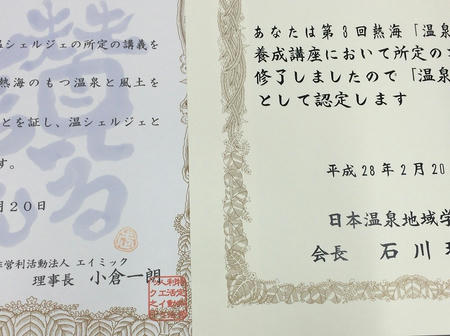 温シェルジェの所定の講義を
熱海のもつ温泉と風土を
とを証し、温シェルジェと
す。
月20日
非営利活動法人 エイミック
理事長 小倉一朗
あなたは第3回熱海「温泉
養成講座において所定の
修了しましたので「温泉
として認定します
平成28年2月20
日本温泉地域学
会長 石川